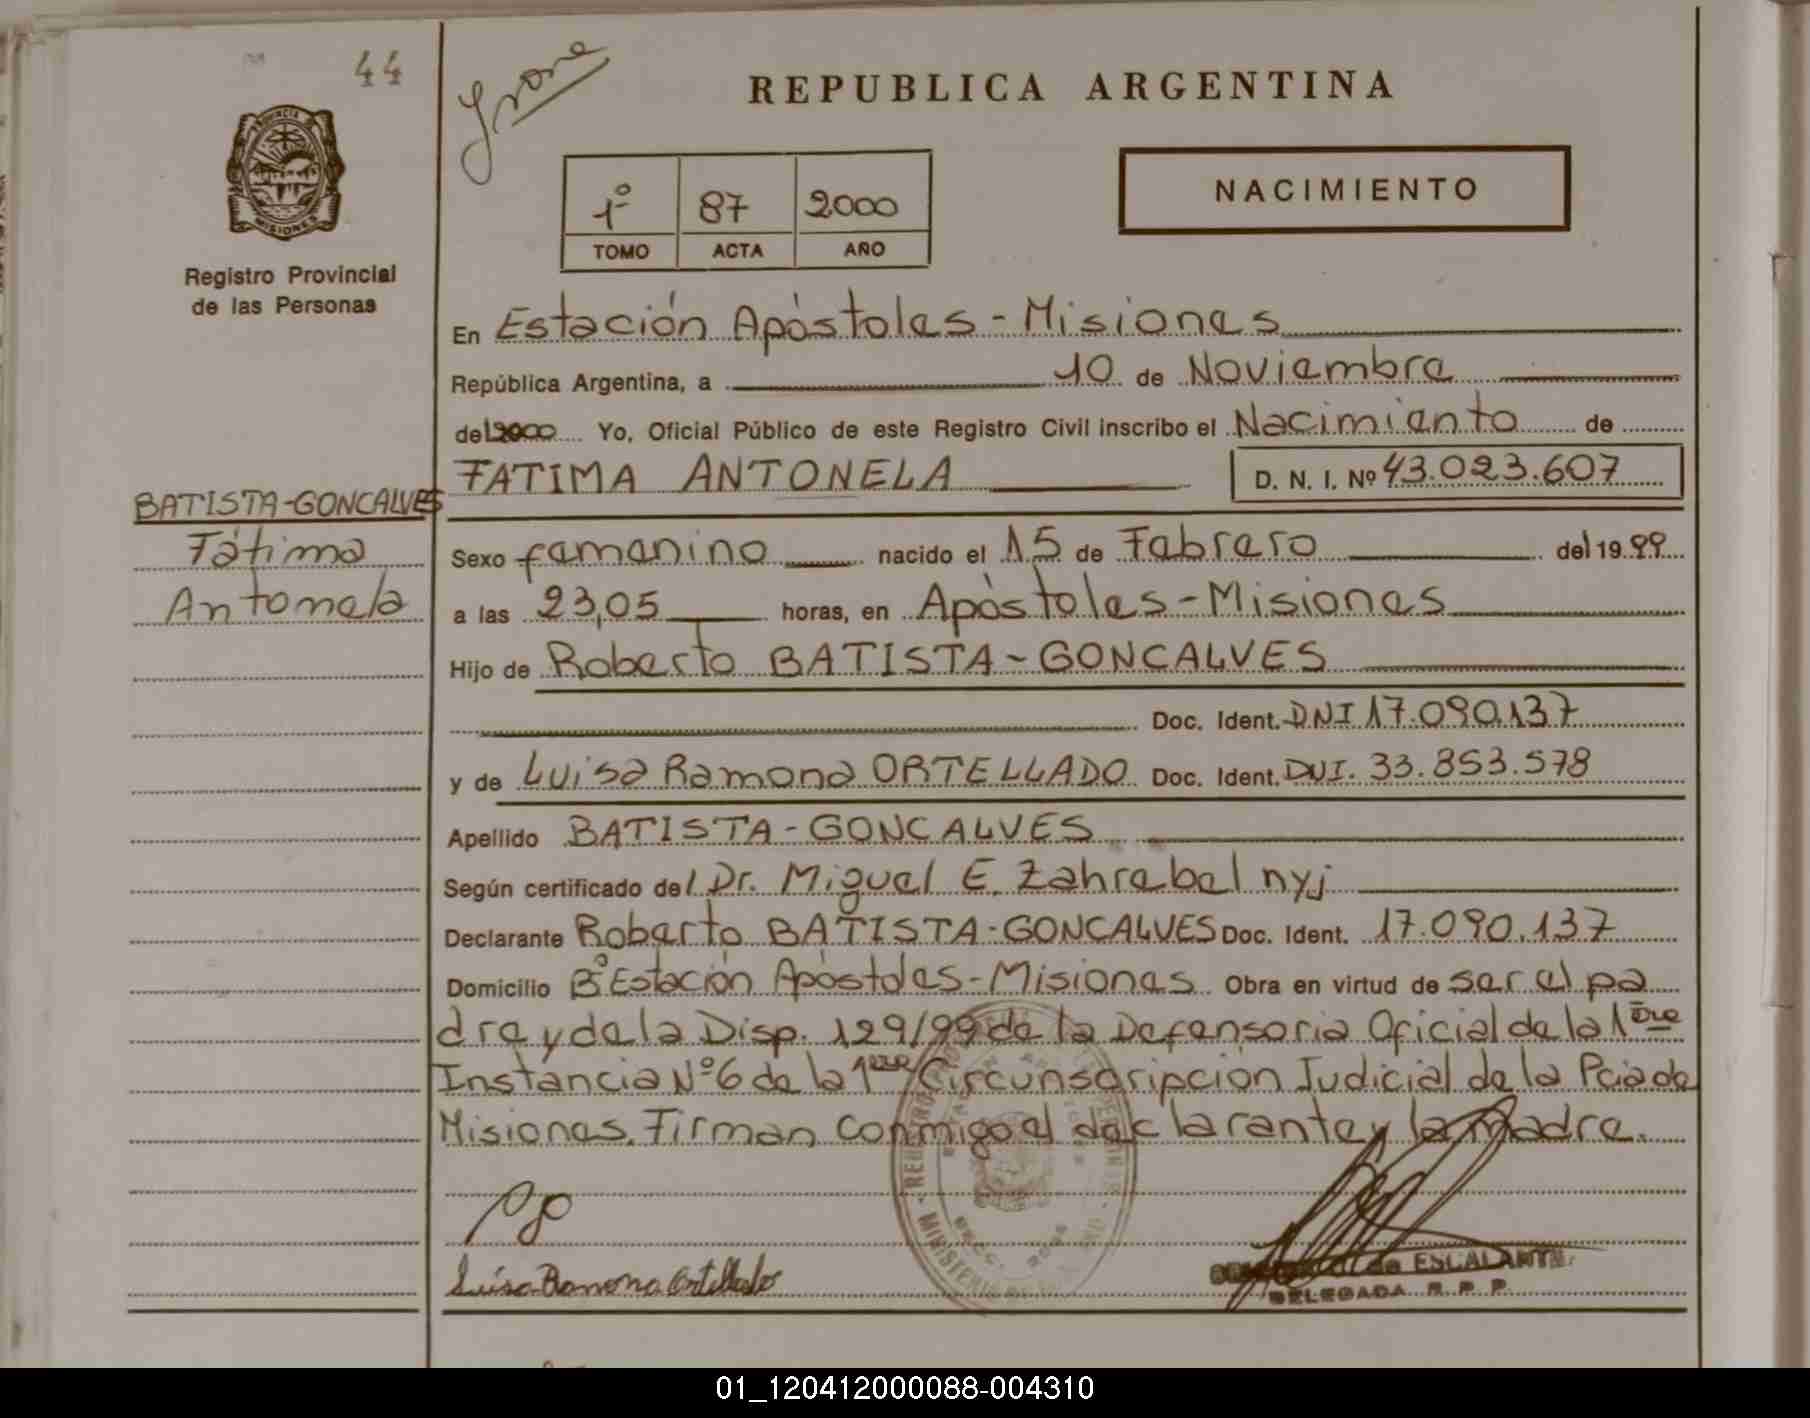 44
REPUBLICA ARGENTINA
PROVINCIA DE
MISIONES
Registro Provincial
de las Personas
1º 87 2000
TOMO ACTA AÑO
NACIMIENTO
En Estación Apóstoles - Misiones
República Argentina, a 10 de Noviembre
del 2000 Yo, Oficial Público de este Registro Civil inscribo el Nacimiento de
FATIMA ANTONELA D. N. I. Nº 43.023.607
BATISTA-GONCALVES
Fátima
Antonela
Sexo femenino nacido el 15 de Febrero del 1999
a las 23,05 horas, en Apóstoles - Misiones
Hijo de Roberto BATISTA - GONCALVES
Doc. Ident. DNI 17.090.137
y de Luisa Ramona ORTELLADO Doc. Ident. DNI. 33.853.578
Apellido BATISTA - GONCALVES
Según certificado del Dr. Miguel E. Zahrebel nyj
Declarante Roberto BATISTA - GONCALVES Doc. Ident. 17.090.137
Domicilio Bº Estación Apóstoles - Misiones Obra en virtud de ser el pa
dre y de la Disp. 129/99 de la Defensoria Oficial de la 1era
Instancia Nº 6 de la 1era Circunscripción Judicial de la Pcia de
Misiones. Firman conmigo el declarante y la Madre.
Luisa Ramona Ortellado
de ESCALANTE
DELEGADA R. P. P.
01_120412000088-004310